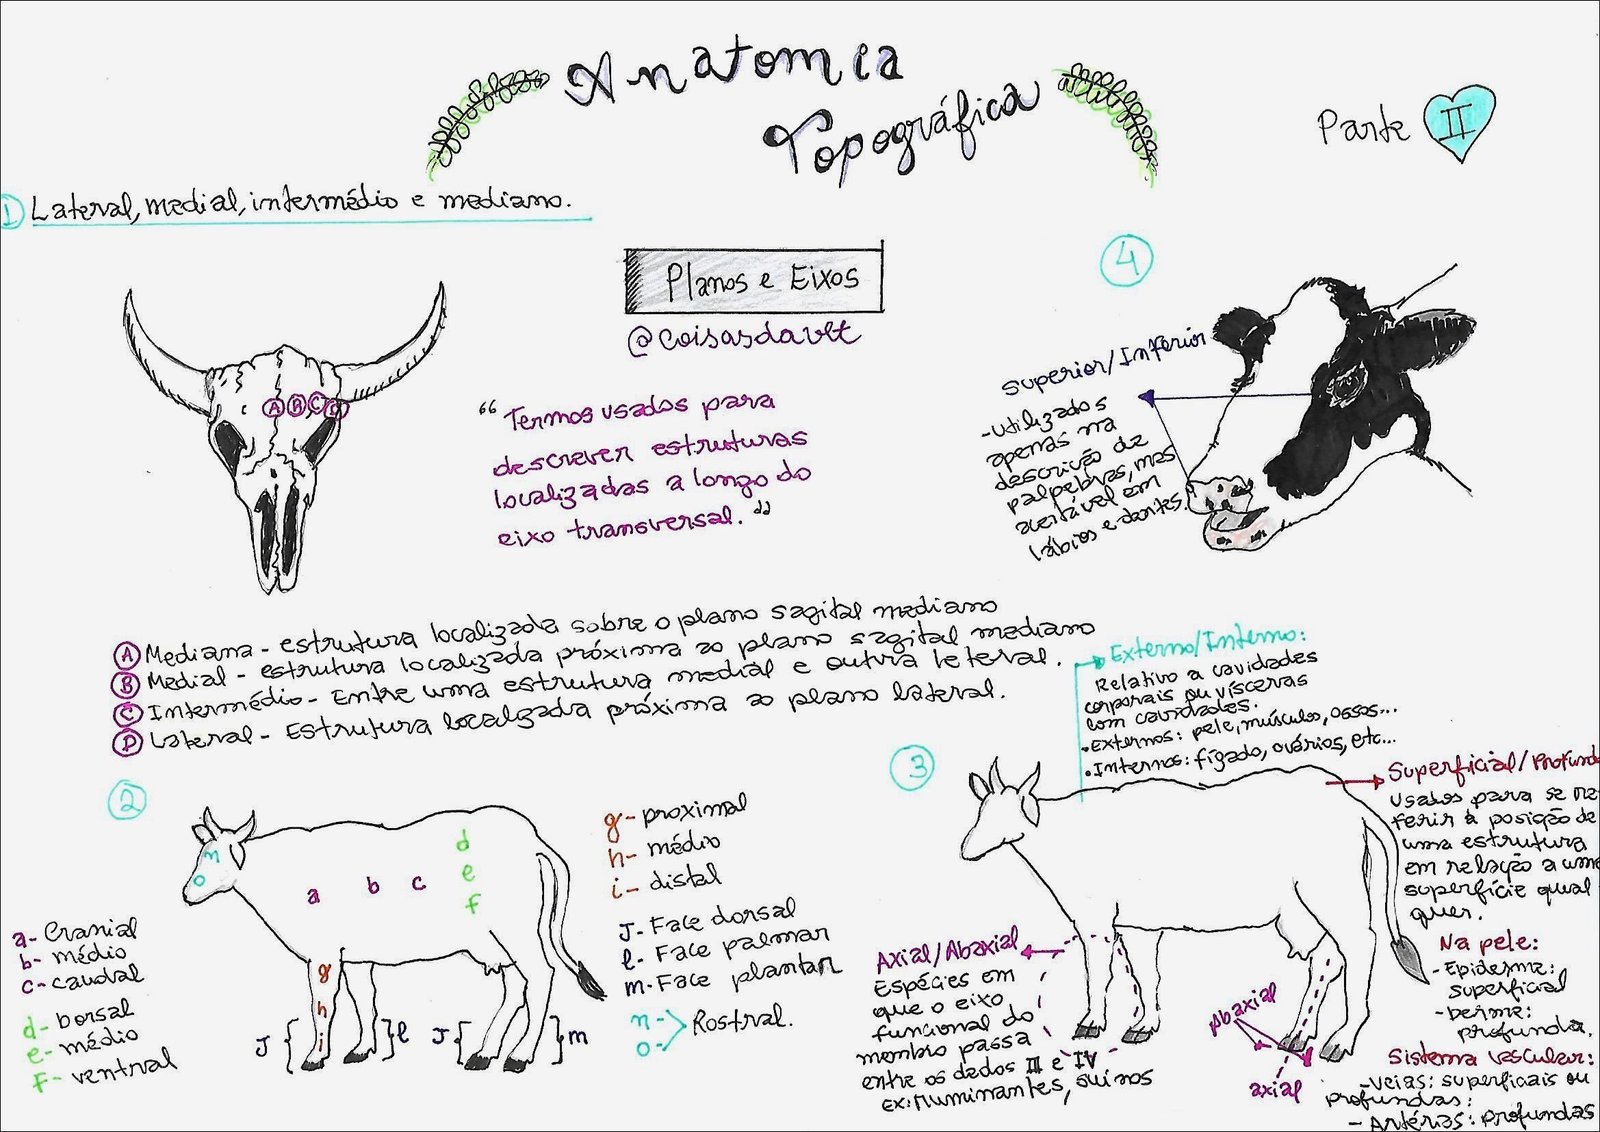 Anatomia
Topográfica
Parte II
1 Lateral, medial, intermédio e mediano.
Planos e Eixos
@coisasdavet
"Termos usados para
descrever estruturas
localizadas a longo do
eixo transversal."
A B C D
4
Superior/Inferior
-Utilizados
apenas na
descrição de
palpebras, mas
aceitável em
lábios e dentes.
A Mediana - estrutura localizada sobre o plano sagital mediano
B Medial - estrutura localizada próxima ao plano sagital mediano
C Intermédio - Entre uma estrutura medial e outra leteral.
D Lateral - Estrutura localizada próxima ao plano lateral.
Externo/Interno:
Relativo a cavidades
corporais ou vísceras
com cavidades.
•Externos: pele, músculos, ossos...
•Internos: fígado, ovários, etc...
2
n
o
a b c
d
e
f
g
h
i
J l J m
a- Cranial
b- médio
c- caudal
d- dorsal
e- médio
f- ventral
g- proximal
h- médio
i- distal
J- Face dorsal
l- Face palmar
m- Face plantar
n-
o- Rostral.
3
Superficial/Profund
Usados para se re
ferir à posição de
uma estrutura
em relação a uma
superfície qual
quer.
Na pele:
- Epiderme:
superficial
- Derme:
profunda.
Sistema vascular:
-Veias: superficiais ou
profundas:
- Artérias: profundas
Axial/Abaxial
Espécies em
que o eixo
funcional do
membro passa
entre os dedos III e IV
ex: ruminantes, suínos
Abaxial
axial